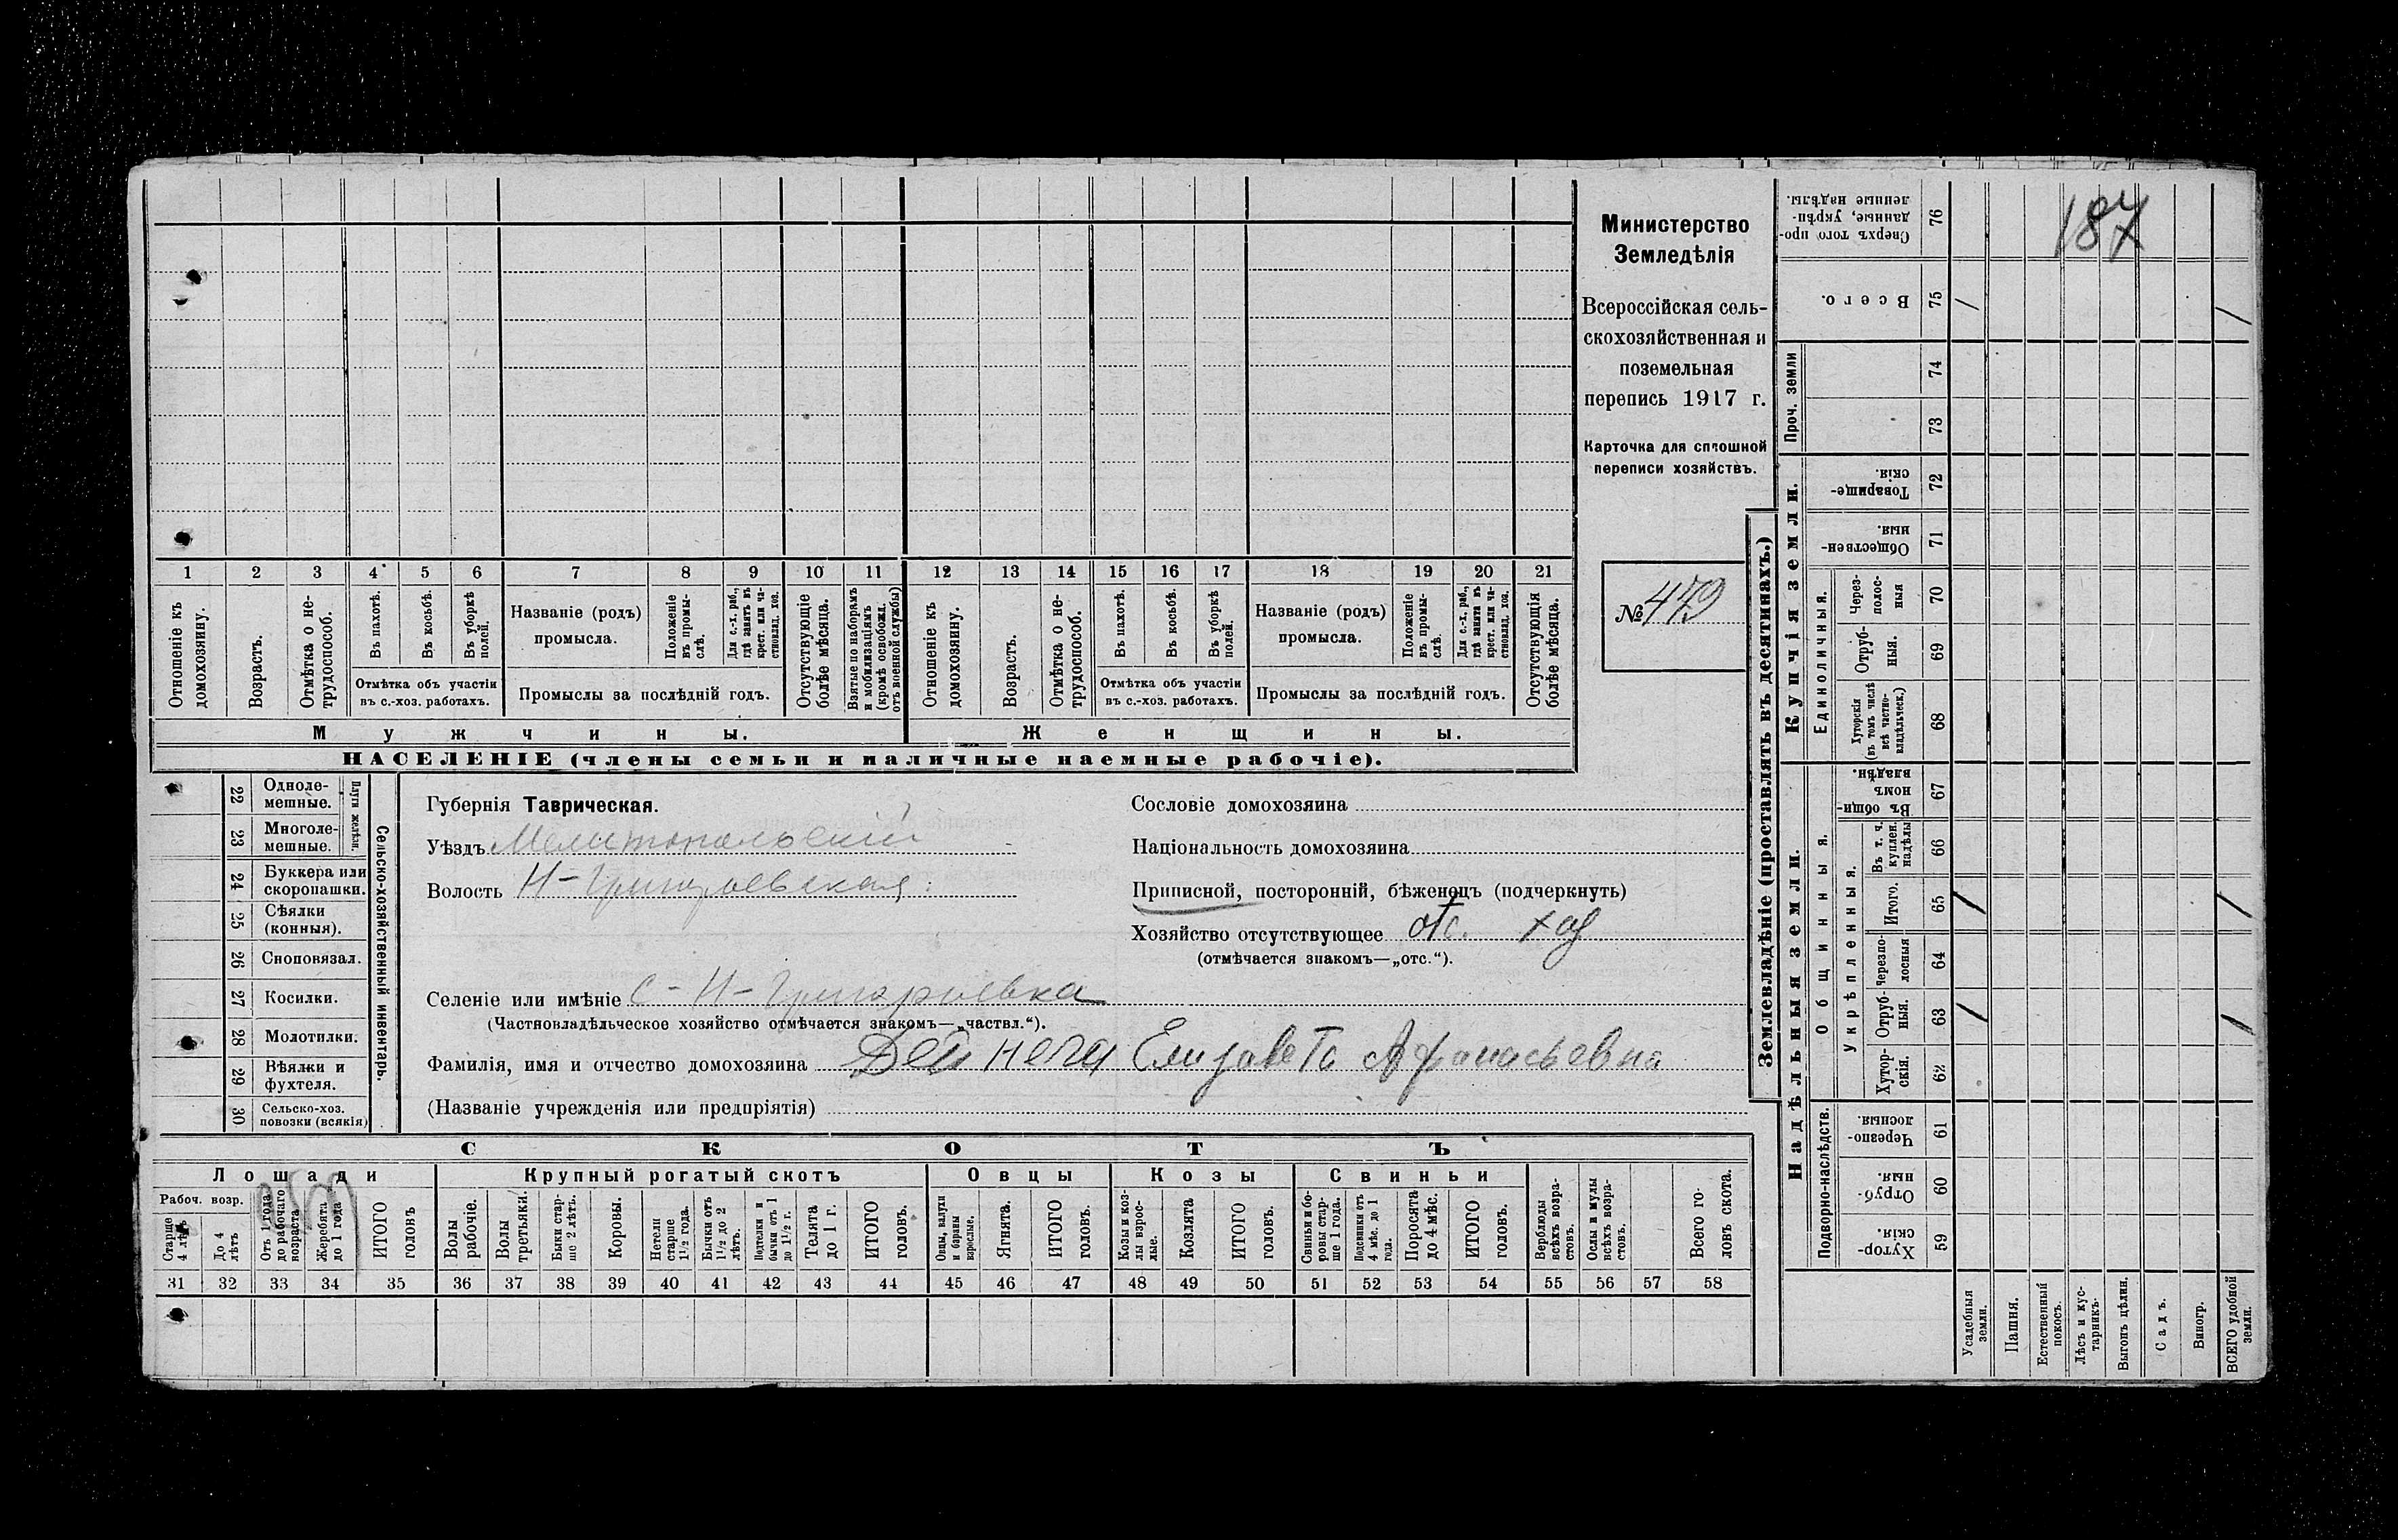 Министерство
Земледѣлія
Всероссійская сель-
скохозяйственная и
поземельная
перепись 1917 г.
Карточка для сплошной
переписи хозяйствъ.
№ 479
187
1 2 3 4 5 6 7 8 9 10 11 12 13 14 15 16 17 18 19 20 21
Отношеніе къ домохозяину.
Возрастъ.
Отмѣтка о не-трудоспособ.
Въ пахотѣ.
Въ косьбѣ.
Въ уборкѣ полей.
Отмѣтка объ участіи
въ с.-хоз. работахъ.
Названіе (родъ)
промысла.
Положеніе въ промы-слѣ.
Для с.-х. раб., гдѣ занятъ въ крест. или ча-стновлад. хоз.
Промыслы за послѣдній годъ.
Отсутствующіе болѣе мѣсяца.
Взятые по наборамъ и мобилизаціямъ (кромѣ освобожд. отъ военной службы)
Отношеніе къ домохозяину.
Возрастъ.
Отмѣтка о не-трудоспособ.
Въ пахотѣ.
Въ косьбѣ.
Въ уборкѣ полей.
Отмѣтка объ участіи
въ с.-хоз. работахъ.
Названіе (родъ)
промысла.
Положеніе въ промы-слѣ.
Для с.-х. раб., гдѣ занята въ крест. или ча-стновлад. хоз.
Промыслы за послѣдній годъ.
Отсутствующія болѣе мѣсяца.
Мужчины. Женщины.
НАСЕЛЕНІЕ (члены семьи и наличные наемные рабочіе).
Сельско-хозяйственный инвентарь.
Плуги желѣзн.
22 Одноле-мешные.
23 Многоле-мешные.
24 Буккера или скоропашки.
25 Сѣялки (конныя).
26 Сноповязал.
27 Косилки.
28 Молотилки.
29 Вѣялки и фухтеля.
30 Сельско-хоз. повозки (всякія)
Губернія Таврическая.
Уѣздъ Мелитопольскій
Волость Н-Григорьевская
Селеніе или имѣніе с-Н-Григорьевка
(Частновладѣльческое хозяйство отмѣчается знакомъ—„частвл.“).
Фамилія, имя и отчество домохозяина Дейнега Елизавета Афанасьевна
(Названіе учрежденія или предпріятія)
Сословіе домохозяина
Національность домохозяина
Приписной, посторонній, бѣженецъ (подчеркнуть)
Хозяйство отсутствующее отс.
(отмѣчается знакомъ—„отс.“).
СКОТЪ
Лошади Крупный рогатый скотъ Овцы Козы Свиньи
Рабоч. возр.
Старше 4 лѣтъ
До 4 лѣтъ
Отъ 1 года до рабочаго возраста
Жеребята до 1 года
ИТОГО головъ
Волы рабочіе.
Волы третьяки.
Быки стар-ше 2 лѣтъ.
Коровы.
Нетели старше 1½ года.
Бычки отъ 1½ до 2 лѣтъ.
Подтелки и бычки отъ 1 до 1½ г.
Телята до 1 г.
ИТОГО головъ.
Овцы, валухи и бараны взрослые.
Ягнята.
ИТОГО головъ.
Козы и коз-лы взрос-лые.
Козлята
ИТОГО головъ.
Свиньи и бо-ровы стар-ше 1 года.
Подсвинки отъ 4 мѣс. до 1 года.
Поросята до 4 мѣс.
ИТОГО головъ.
Верблюды всѣхъ возра-стовъ.
Ослы и мулы всѣхъ возра-стовъ.
Всего го-ловъ скота.
31 32 33 34 35 36 37 38 39 40 41 42 43 44 45 46 47 48 49 50 51 52 53 54 55 56 57 58
Землевладѣніе (проставлять въ десятинахъ.)
Надѣльныя земли.
Купчія земли.
Проч. земли
Подворно-наслѣдств.
Общинныя.
Укрѣпленныя.
Единоличныя.
Хутор-скія. 59
Отруб-ныя. 60
Черезпо-лосныя. 61
Хутор-скія. 62
Отруб-ныя. 63
Черезпо-лосныя 64
Итого. 65
Въ т. ч. куплен. надѣлы 66
Въ общин-номъ владѣн. 67
Хуторскія (въ томъ числѣ всѣ частно-владѣльческ.) 68
Отруб-ныя. 69
Через-полос-ныя 70
Обществен-ныя. 71
Товарище-скія. 72
73
74
Всего. 75
Сверхъ того про-данные, укрѣп-ленные надѣлы. 76
Усадебныя земли.
Пашня.
Естественный покосъ.
Лѣсъ и кус-тарникъ.
Выгонъ цѣлин.
Садъ.
Виногр.
ВСЕГО удобной земли.